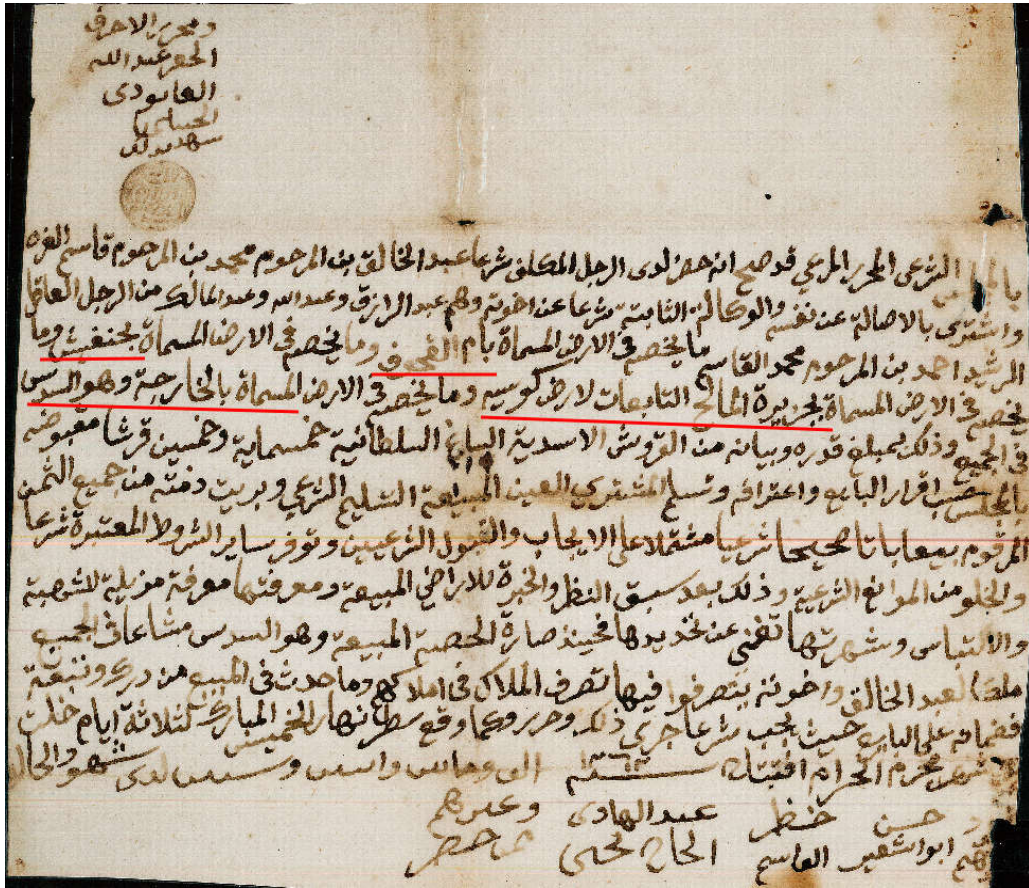 ومحرر الاحرف
الحقير عبد الله
العابودي
الحنبلي
شهد بذلك
الشرعي المحرر المرعي قد صح انه حضر لدى الرجل المكلف شرعا عبد الخالق بن المرحوم محمد بن المرحوم قاسم
واشترى بالاصالة عن نفسه والوكالة الثابتة شرعا عن اخوته وهم عبد الرازق وعبد الله وعبد المالك من الرجل العاقل
الرشيد احمد بن المرحوم محمد القاسم ما يخصه في الارض المسماة بام وما يخصه في الارض المسماة بحنفيش وما
يخصه في الارض المسماة بجزيرة المالح التابعات لارض كوسيه وما يخصه في الارض المسماة بالخارجة وهو السدس
في الجميع وذلك بمبلغ قدره وبيانه من القروش الاسدية السلطانية خمسماية وخمسين قرشا مقبوضه
بالمجلس حسب اقرار البايع واعترافه وتسلم المشتري العين المبيعة التسليم الشرعي وبريت ذمته من جميع الثمن
المرقوم بيعا باتا صحيحا شرعيا مشتملا على الايجاب والقبول الشرعيين وتوفر ساير الشروط المعتبرة شرعا
والخلو من الموانع الشرعية وذلك بعد سبق النظر والخبرة للاراضي المبيعة ومعرفتها معرفة مزيلة للشبهة
والالتباس وشهرتها تغني عن تحديدها فحينئذ صارة الحصة المبيعة وهو السدس مشاعا في الجميع
ملكا لعبد الخالق واخوته يتصرفوا فيها تصرف الملاك في املاكهم وما حدث في المبيع من درك وتبعة
فضمانه على البايع حيث يجب شرعا جرى ذلك وحرر وعما وقع سطر نهار الخميس المبارك لثلاثة ايام خلت
شهر محرم الحرام افتتاح سنة الف ومايتين واثنين وستين لدى شهود الحال
حسن خضر عبد الهادي وغيرهم
ابو اشعير القاسم الحاج محمد ممن حضر